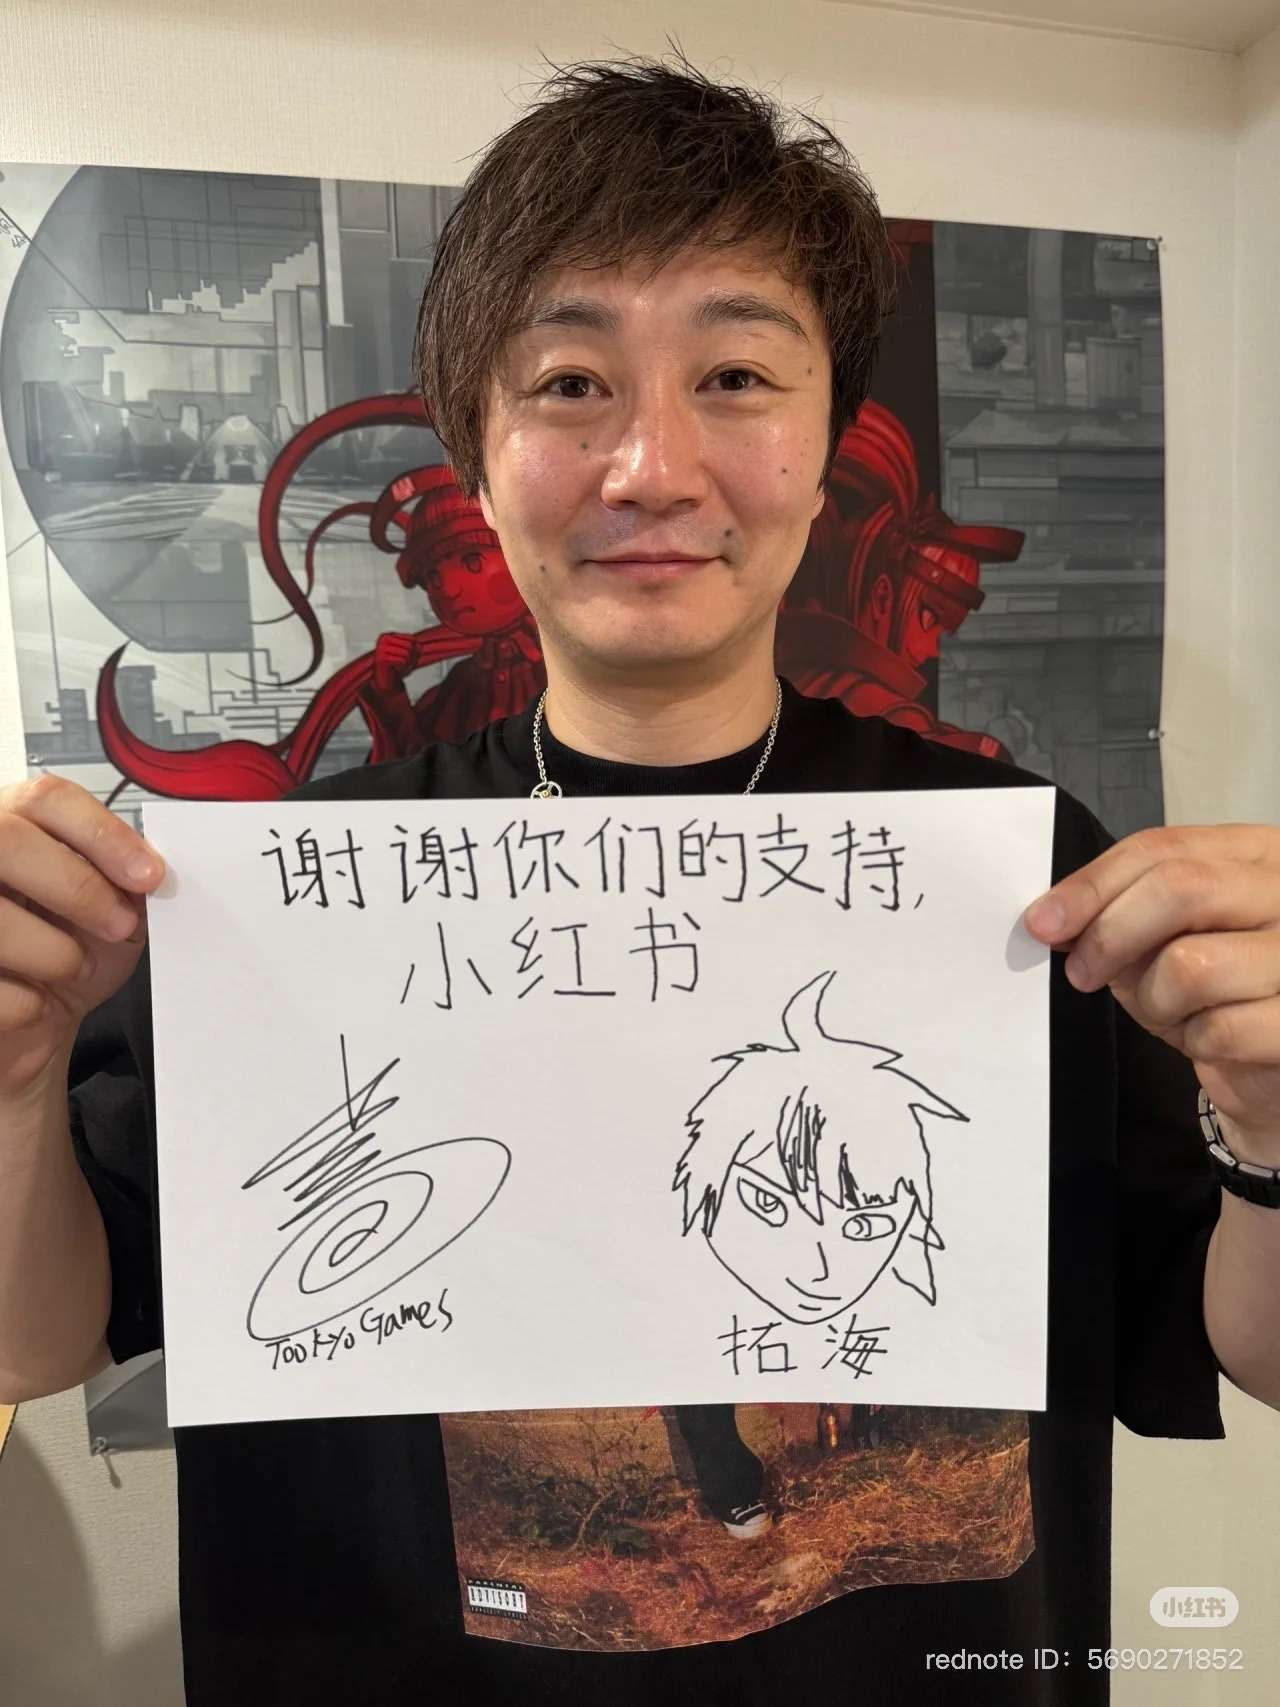 谢谢你们的支持,
小红书
TooKyo Games
拓海
PARENTAL
ADVISORY
EXPLICIT LYRICS
小红书
rednote ID: 5690271852